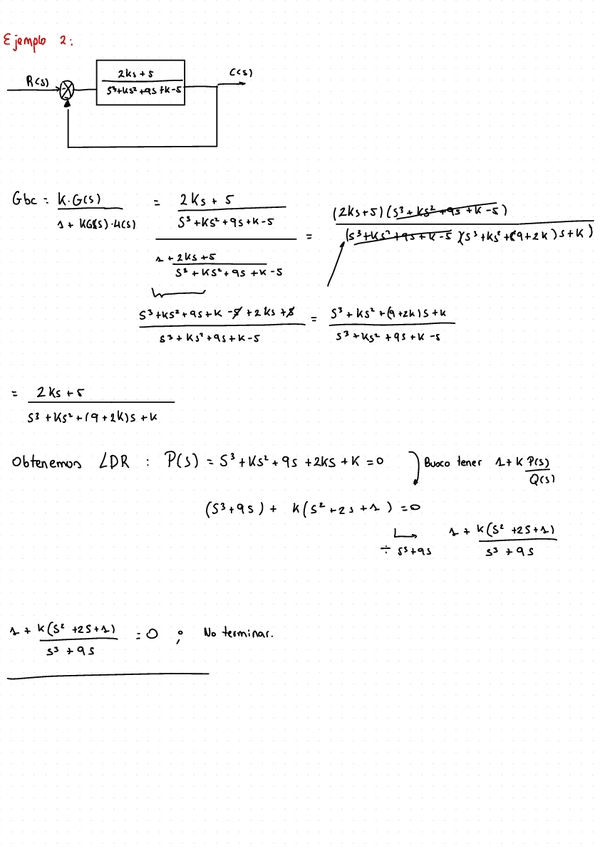 Ejemplo 2:
R(s)
2Ks + 5
S³+Ks²+9s+K-5
C(s)
Gbc = K·G(s) / 1 + KG(s)·H(s) = 2Ks + 5 / S³+Ks²+9s+K-5 / 1 + 2Ks+5 / S³+Ks²+9s+K-5 = (2Ks+5)(S³+Ks²+9s+K-5) / (S³+Ks²+9s+K-5)(S³+Ks²+(9+2K)s+K)
S³+Ks²+9s+K-5+2Ks+5 / S³+Ks²+9s+K-5 = S³+Ks²+(9+2K)s+K / S³+Ks²+9s+K-5
= 2Ks+5 / S³+Ks²+(9+2K)s+K
Obtenemos LDR : P(s) = S³+Ks²+9s+2Ks+K=0 Busco tener 1+K P(s) / Q(s)
(S³+9s) + K(s²+2s+1) = 0
÷ s³+9s
1 + K(s²+2s+1) / s³+9s
1 + K(s²+2s+1) / s³+9s = 0 ; No terminar.